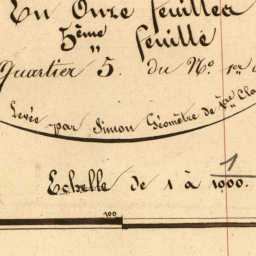 En Onze feuilles
5ème feuille
Quartier 5. du N.º 1er
Levée par Simon Géomètre de 1ère Cla
Echelle de 1 à 1000.
1
100